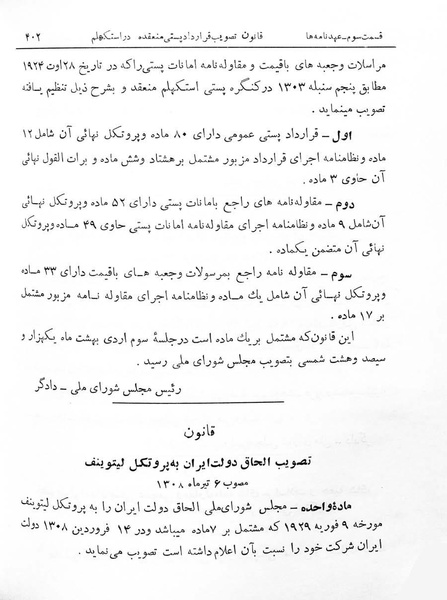 قسمت سوم_عهدنامه‌ها قانون تصویب قرارداد پستی منعقده در استکهلم ۴۰۲
مراسلات وجعبه های باقیمت و مقاوله‌نامه امانات پستی راکه در تاریخ ۲۸ اوت ۱۹۲۴
مطابق پنجم سنبله ۱۳۰۳ درکنگره پستی استکهلم منعقد و بشرح ذیل تنظیم یافته
تصویب مینماید .
اول - قرارداد پستی عمومی دارای ۸۰ ماده وپروتکل نهائی آن شامل ۱۲
ماده ونظامنامه اجرای قرارداد مزبور مشتمل برهشتاد وشش ماده و برات القول نهائی
آن حاوی ۳ ماده .
دوم - مقاوله‌نامه های راجع بامانات پستی دارای ۵۲ ماده وپروتکل نهائی
آن‌شامل ۹ ماده ونظامنامه اجرای مقاوله‌نامه امانات پستی حاوی ۴۹ ماده وپروتکل
نهائی آن متضمن یکماده .
سوم - مقاوله نامه راجع بمرسولات وجعبه های باقیمت دارای ۳۳ ماده
وپروتکل نهائی آن شامل یك ماده ونظامنامه اجرای مقاوله نامه مزبور مشتمل
بر ۱۷ ماده .
این قانون‌که مشتمل بر یك ماده است درجلسهٔ سوم اردی بهشت ماه یکهزار و
سیصد وهشت شمسی بتصویب مجلس شورای ملی رسید .
رئیس مجلس شورای ملی - دادگر
قانون
تصویب الحاق دولت ایران به پروتکل لیتوینف
مصوب ۶ تیرماه ۱۳۰۸
مادهٔ واحده - مجلس شورای‌ملی الحاق دولت ایران را به پروتکل لیتوینف
مورخه ۹ فوریه ۱۹۲۹ که مشتمل بر ۷ماده میباشد ودر ۱۴ فروردین ۱۳۰۸ دولت
ایران شرکت خود را نسبت بآن اعلام‌داشته است تصویب می‌نماید .